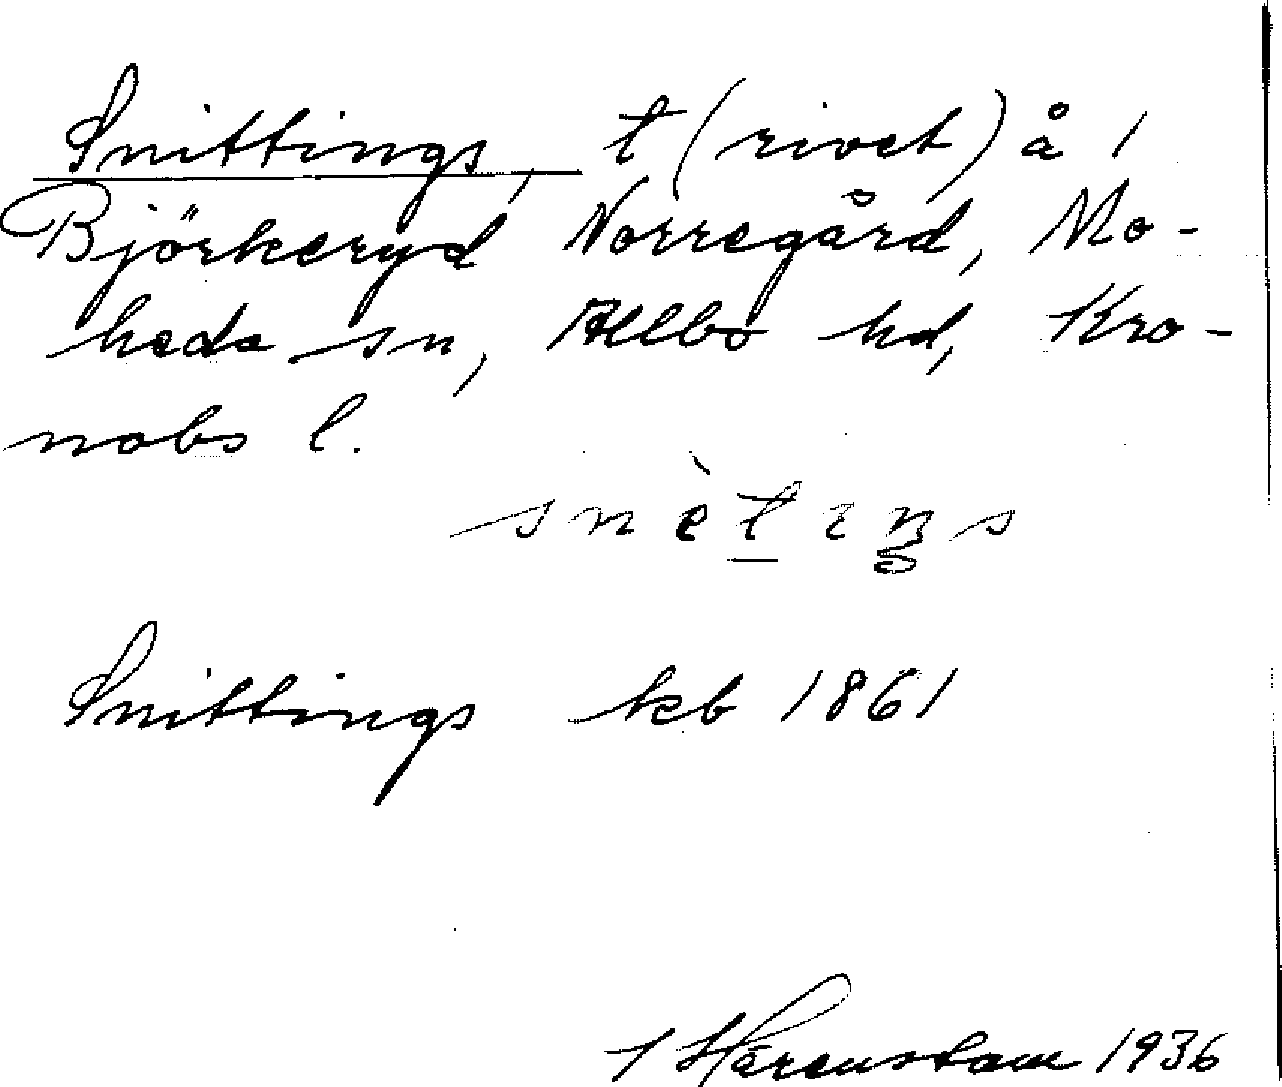 Snittings, t (rivet) å 1
Björkeryd Norregård, Mo-
heda sn, Allbo hd, Kro-
nobs l.
snètıŋs
Snittings kb 1861
Härenstam 1936